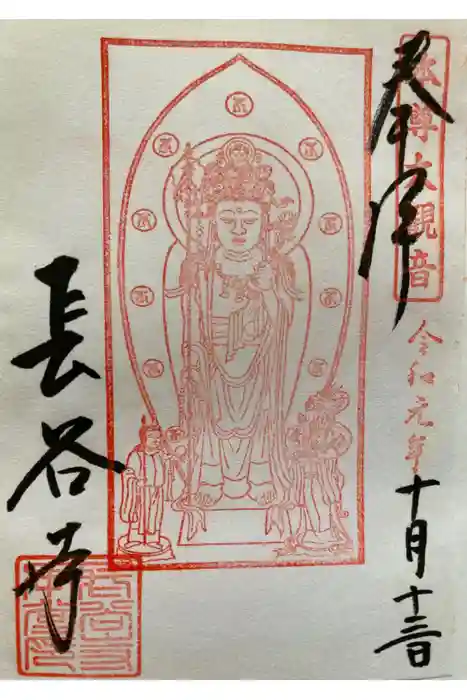 奉拝
本尊大観音
令和元年十月十三日
長谷寺